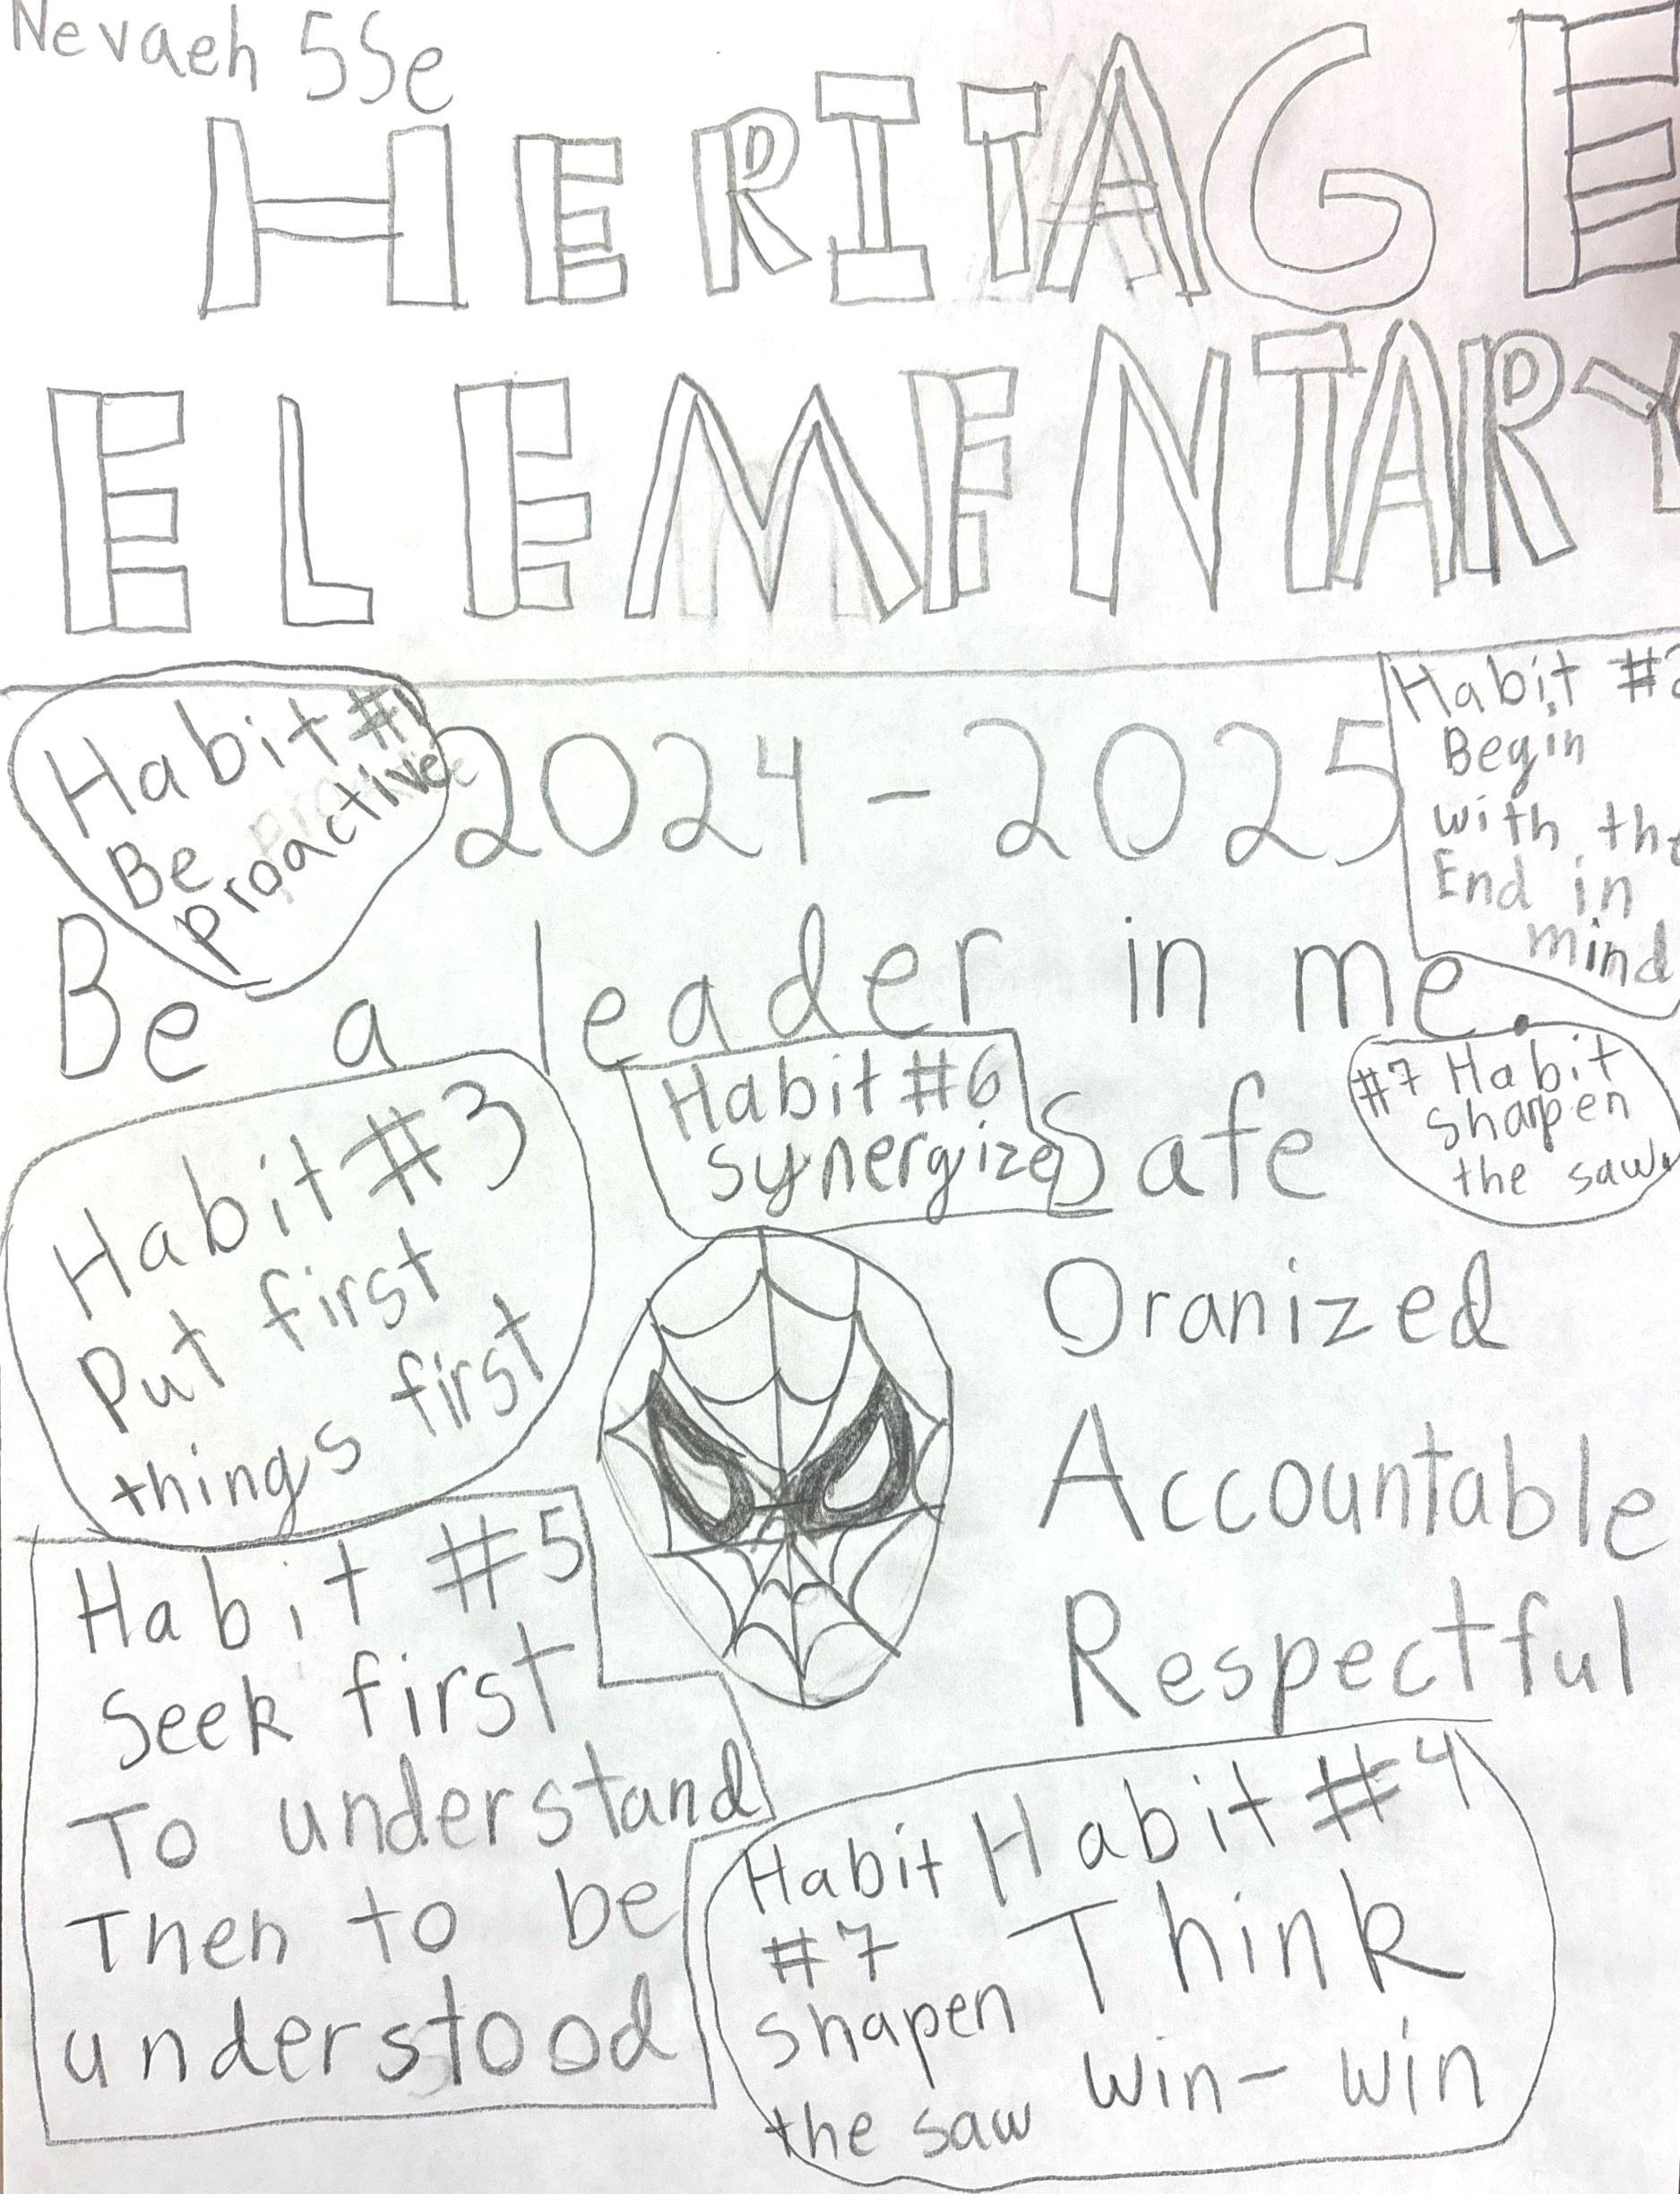 Nevaeh 5Se
HERITAGE
ELEMENTARY
Habit #1
Be
proactive
2024-2025
Habit #2
Begin
with the
End in
mind
Be a leader in me.
Habit #3
Put first
things first
Habit #6
synergize
Safe
#7 Habit
sharpen
the saw.
Oranized
Accountable
Respectful
Habit #5
Seek first
To understand
Then to be
understood
Habit
#7
shapen
the saw
Habit #4
Think
win-win